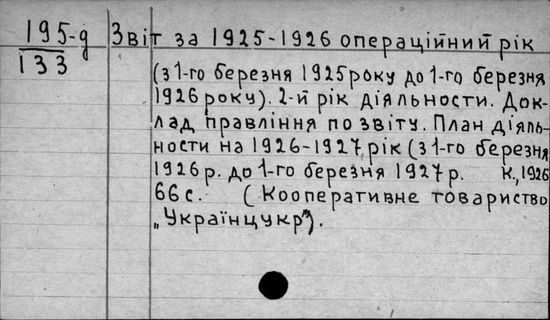 195-д Звіт за 1925-1926 операційний рік
133
(з 1-го березня 1925 року до 1-го березня
1926 року). 2-й рік діяльности. Док-
лад правління по звіту. План діяль-
ности на 1926-1927 рік (з 1-го березня
1926 р. до 1-го березня 1927 р. К., 1926
66 с. (Кооперативне товариство
„Українцукр").